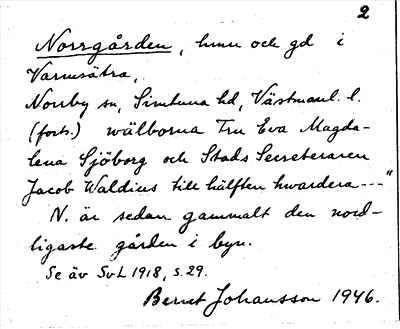 2
Norrgården, hmn och gd i
Varmsätra,
Norrby sn, Simtuna hd, Västmanl. l.
(forts.) wälborna Fru Eva Magda-
lena Sjöborg och Stads Secreteraren
Jacob Waldius till hälften hwardera---"
N. är sedan gammalt den nord-
ligaste gården i byn.
Se äv SvL 1918, s. 29.
Bernet Johansson 1946.